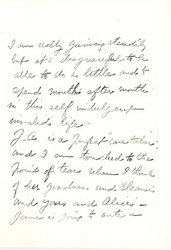 I am really gaining steadily
but it's disgraceful to be
able to do so little and to
spend months after months
in this self indulgent
invalids life -
J. is a perfect "care taker"
and I am touched to the
point of tears when I think
of her goodness and Eleanor's
and yours and Alice's -
Jane is going to